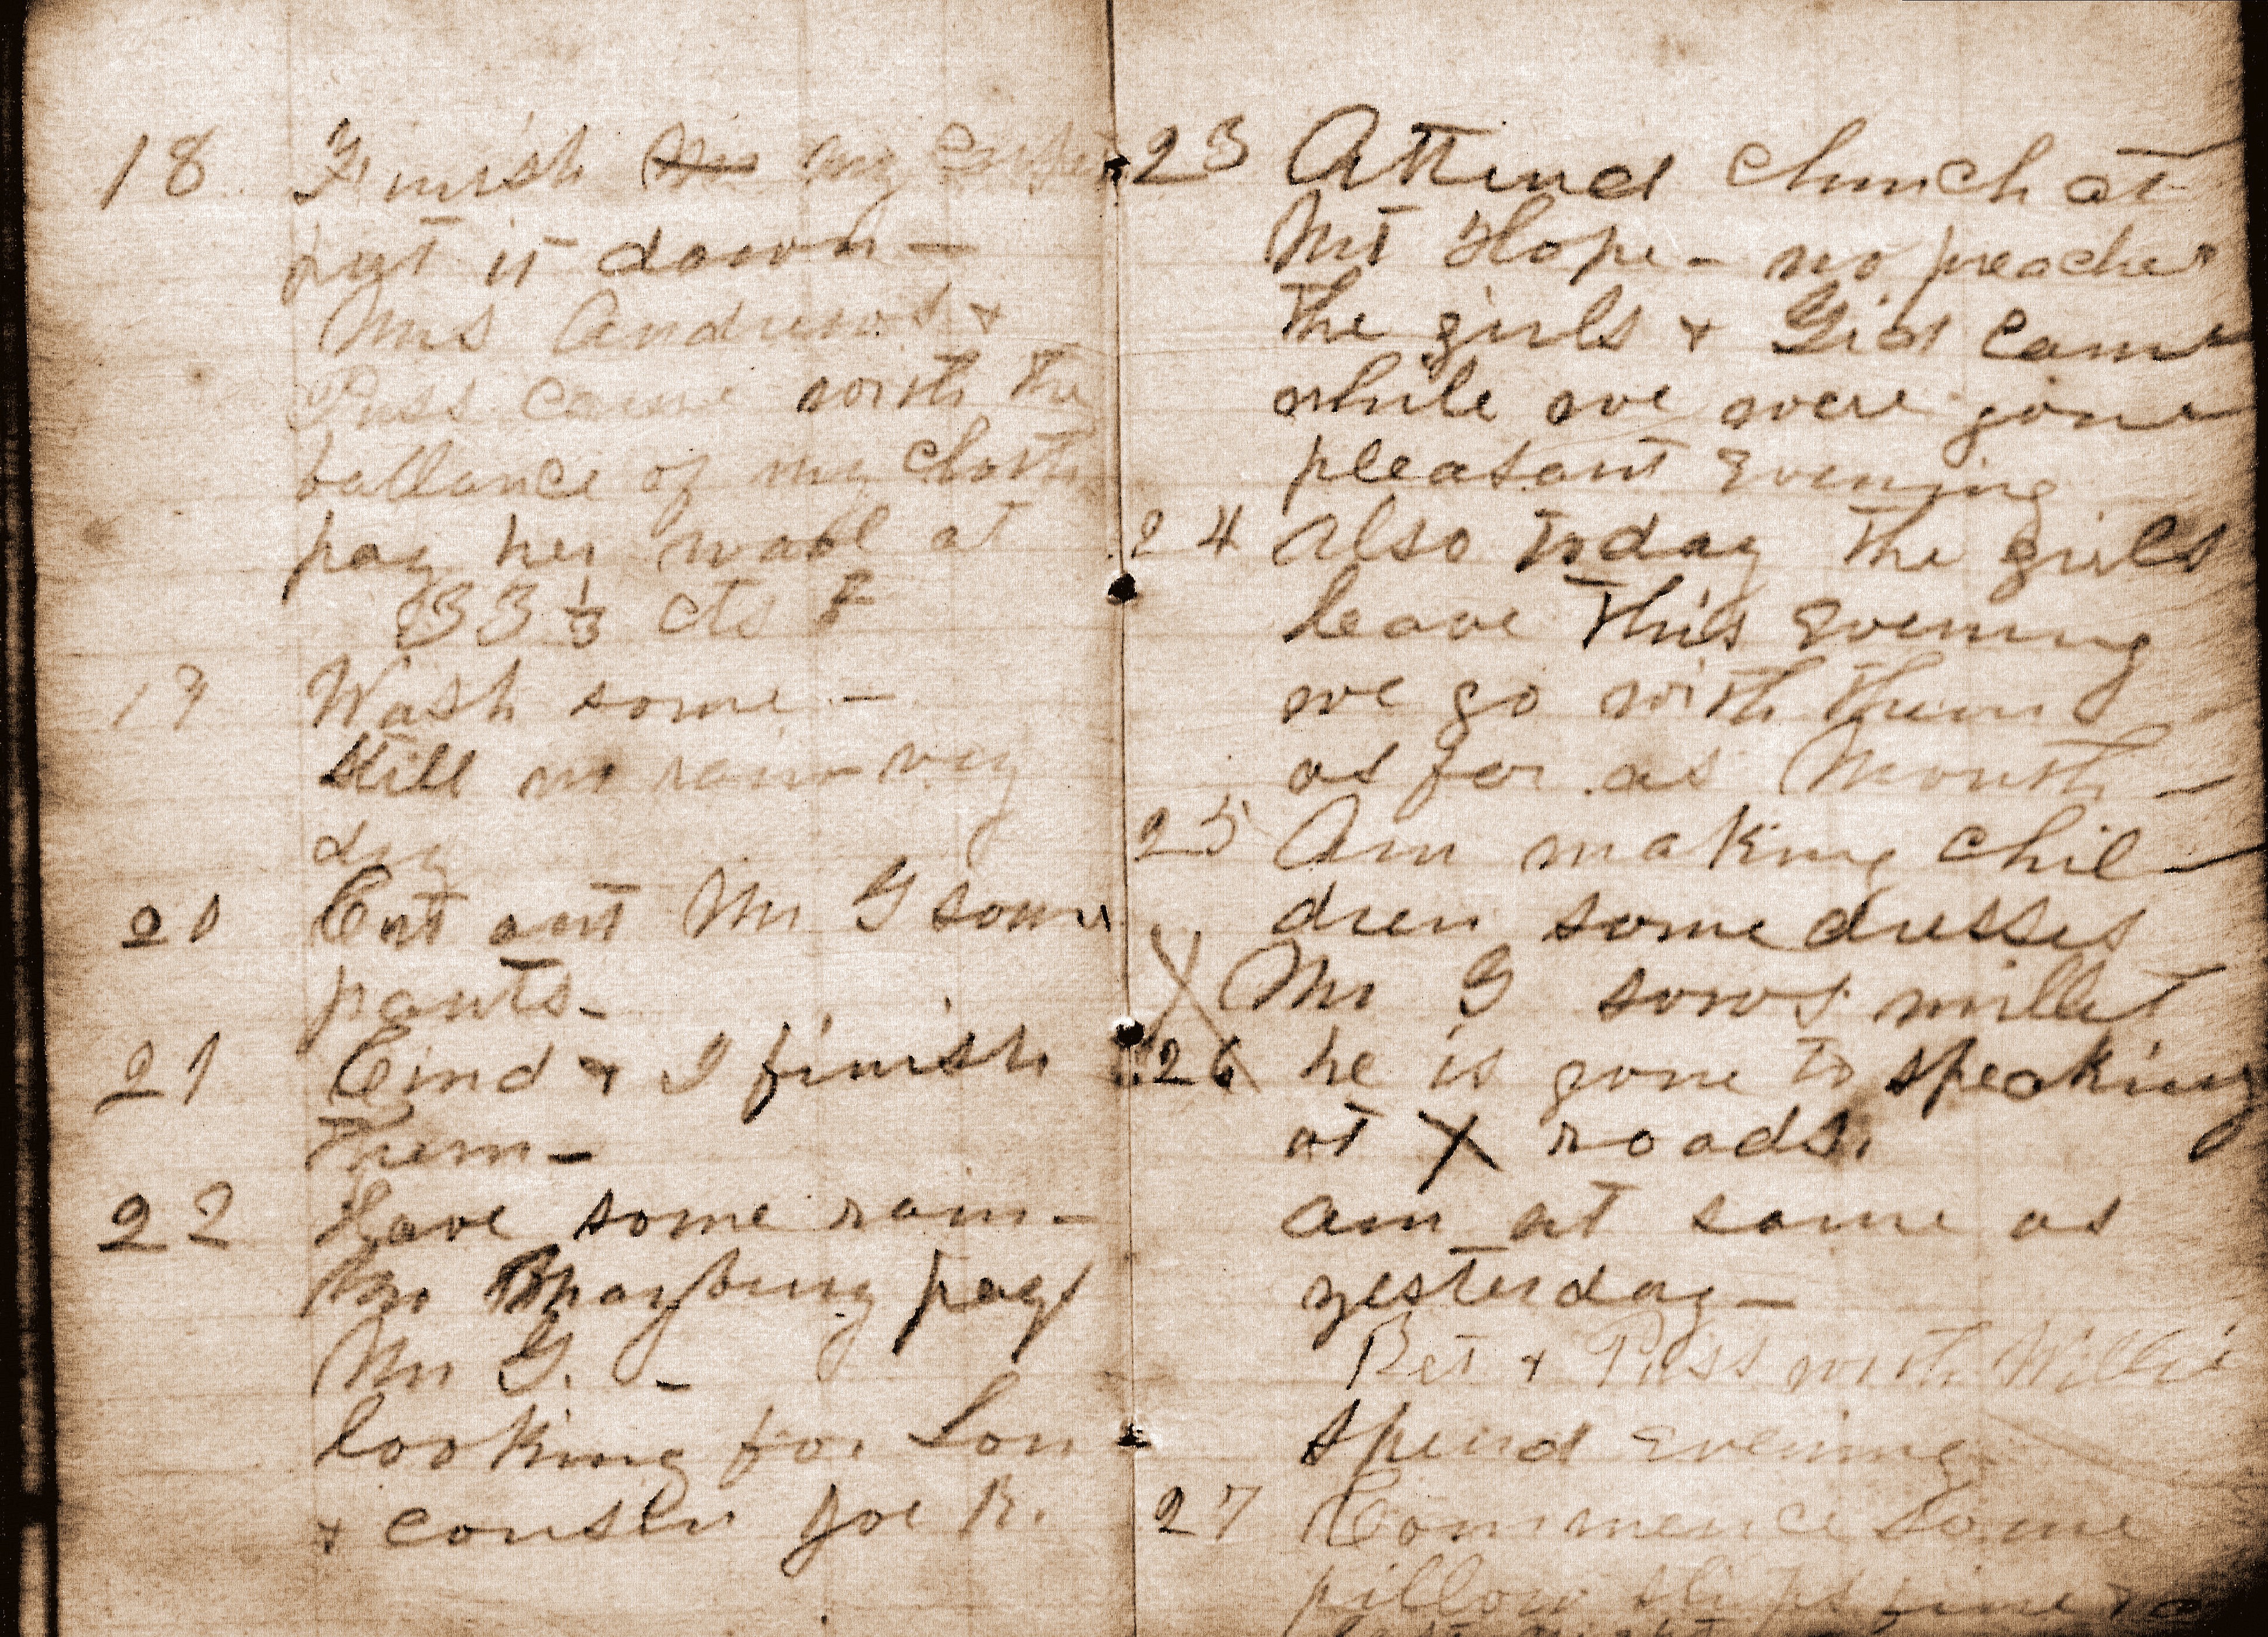 18 Finish my
put it down —
Mrs Andrews &
Puss came with the
ballance of my cloth
pay her wool at
33 1/3 cts
19 Wash some —
Still no rain very
dry
20 Cut out Mr G some
pants —
21 Cind & I finish
them —
22 Have some rain —
Mr Mayberry pays
Mr G. —
looking for Lon
& cousin Joe R.
23 Attend church at
Mt Hope — no preacher
the girls & Gid came
while we were gone
pleasant evening
24 Also today the girls
leave this evening
we go with them
as far as Mouth —
25 Am making chil-
dren some dresses
X Mr G sows millet
26 he is gone to speaking
at X roads.
am at same as
yesterday —
Bet & Puss with Willie
spend evening
27 Commence some
pillow slips
last night